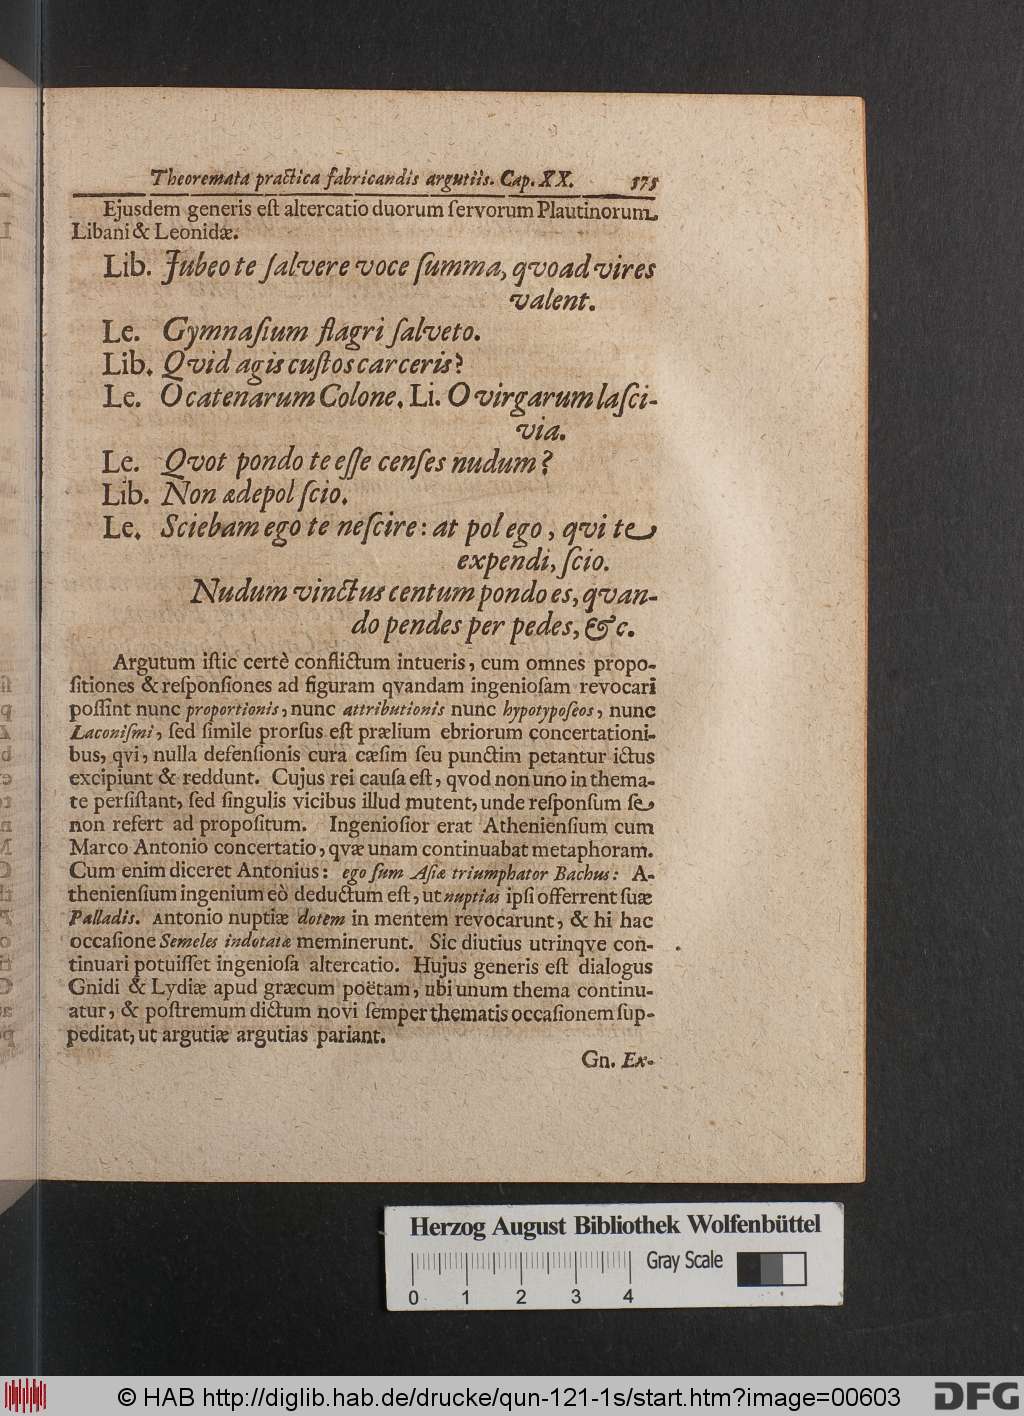 Theoremata practica fabricandis argutiis. Cap. XX. 575
Ejusdem generis eſt altercatio duorum ſervorum Plautinorum
Libani & Leonidæ.
Lib. Jubeo te ſalvere voce ſumma, qvoad vires
valent.
Le. Gymnaſium flagri ſalveto.
Lib. Qvid agis cuſtos carceris?
Le. O catenarum Colone. Li. O virgarum laſci-
via.
Le. Qvot pondo te eſſe cenſes nudum?
Lib. Non ædepol ſcio.
Le. Sciebam ego te neſcire: at pol ego, qvi te
expendi, ſcio.
Nudum vinctus centum pondo es, qvan-
do pendes per pedes, &c.
Argutum iſtic certè conflictum intueris, cum omnes propo-
ſitiones & reſponſiones ad figuram qvandam ingenioſam revocari
poſſint nunc proportionis, nunc attributionis nunc hypotypoſeos, nunc
Laconiſmi, ſed ſimile prorſus eſt prælium ebriorum concertationi-
bus, qvi, nulla defenſionis cura cæſim ſeu punctim petantur ictus
excipiunt & reddunt. Cujus rei cauſa eſt, qvod non uno in thema-
te perſiſtant, ſed ſingulis vicibus illud mutent, unde reſponſum ſe
non refert ad propoſitum. Ingenioſior erat Athenienſium cum
Marco Antonio concertatio, qvæ unam continuabat metaphoram.
Cum enim diceret Antonius: ego ſum Aſiæ triumphator Bachus: A-
thenienſium ingenium eò deductum eſt, ut nuptias ipſi offerrent ſuæ
Palladis. Antonio nuptiæ dotem in mentem revocarunt, & hi hac
occaſione Semeles indotatæ meminerunt. Sic diutius utrinqve con-
tinuari potuiſſet ingenioſa altercatio. Hujus generis eſt dialogus
Gnidi & Lydiæ apud græcum poëtam, ubi unum thema continu-
atur, & poſtremum dictum novi ſemper thematis occaſionem ſup-
peditat, ut argutiæ argutias pariant.
Gn. Ex-
Herzog August Bibliothek Wolfenbüttel
Gray Scale
0 1 2 3 4
© HAB http://diglib.hab.de/drucke/qun-121-1s/start.htm?image=00603
DFG